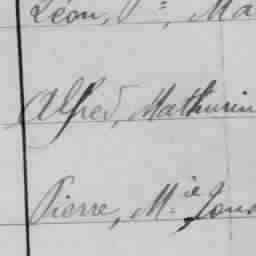 Léon, Pre, Ma
Alfred, Mathurin
Pierre, M.ie Jous